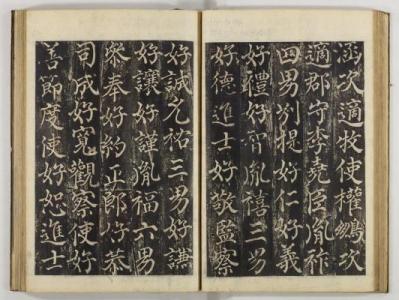 次適牧使權次
適郡守李堯臣胤祚
四男別提好仁好義
好禮好智胤禧三男
好德進士好敬監察
好誠允祐三男好謙
好讓好謹胤福六男
叅奉好約正郎好恭
司成好寬觀察使好
善節度使好恕進士